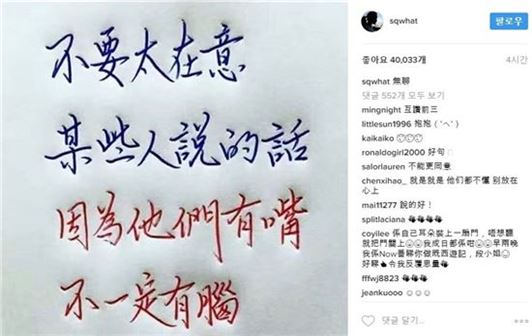 不要太在意
某些人說的話
因為他們有嘴
不一定有腦
sqwhat
팔로우
좋아요 40,033개
4시간
sqwhat 無聊
댓글 552개 모두 보기
mingnight 互讚前三
littlesun1996 抱抱（´へ`）
kaikaiko
ronaldogirl2000 好句
salorlauren 不能更同意
chenxihao_ 就是就是 他们都不懂 别放在
心上
mai11277 說的好！
splitlaciana
coyilee 係自己耳朵裝上一腩門，唔想聽
就把門關上 我成日都係咁 早兩晚
我係Now番睇你做既西遊記，段小姐
好睇 令我反覆思量
fffwj8823
jeankuooo
댓글 달기...